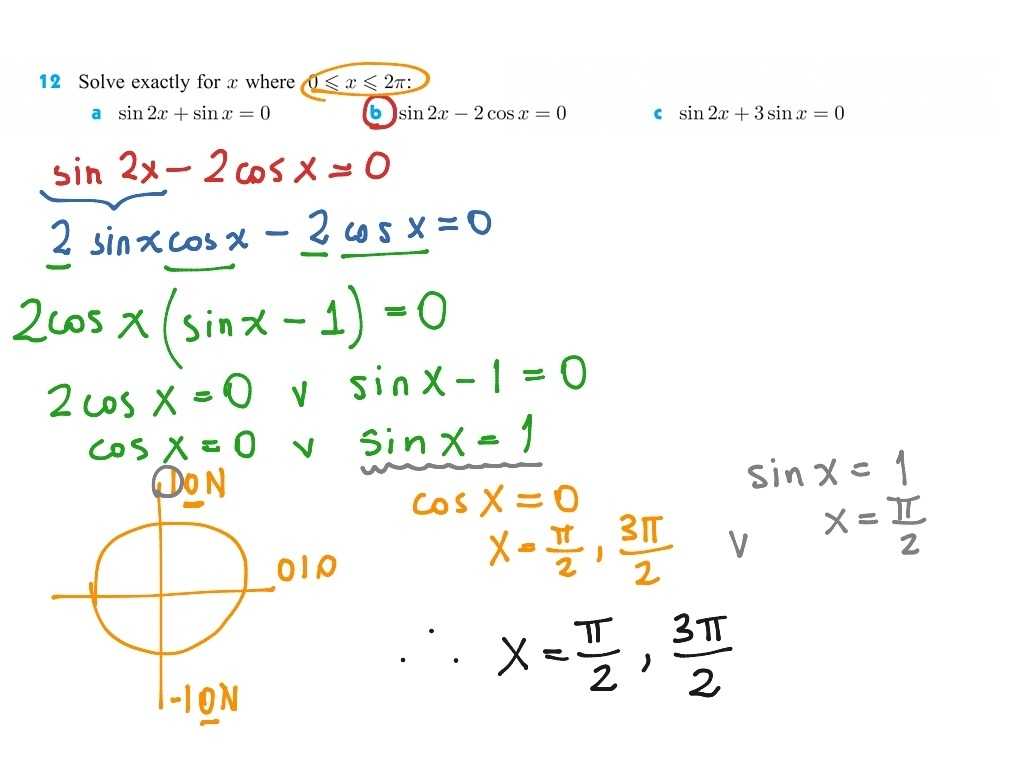 12 Solve exactly for x where 0 ⩽ x ⩽ 2π:
a sin 2x + sin x = 0 b sin 2x − 2 cos x = 0 c sin 2x + 3 sin x = 0
sin 2x − 2 cos x = 0
2 sin x cos x − 2 cos x = 0
2 cos x (sin x − 1) = 0
2 cos x = 0 v sin x − 1 = 0
cos x = 0 v sin x = 1
1 0 N
0 1 0
-1 0 N
cos x = 0
x = π/2 , 3π/2
v
sin x = 1
x = π/2
∴ x = π/2 , 3π/2